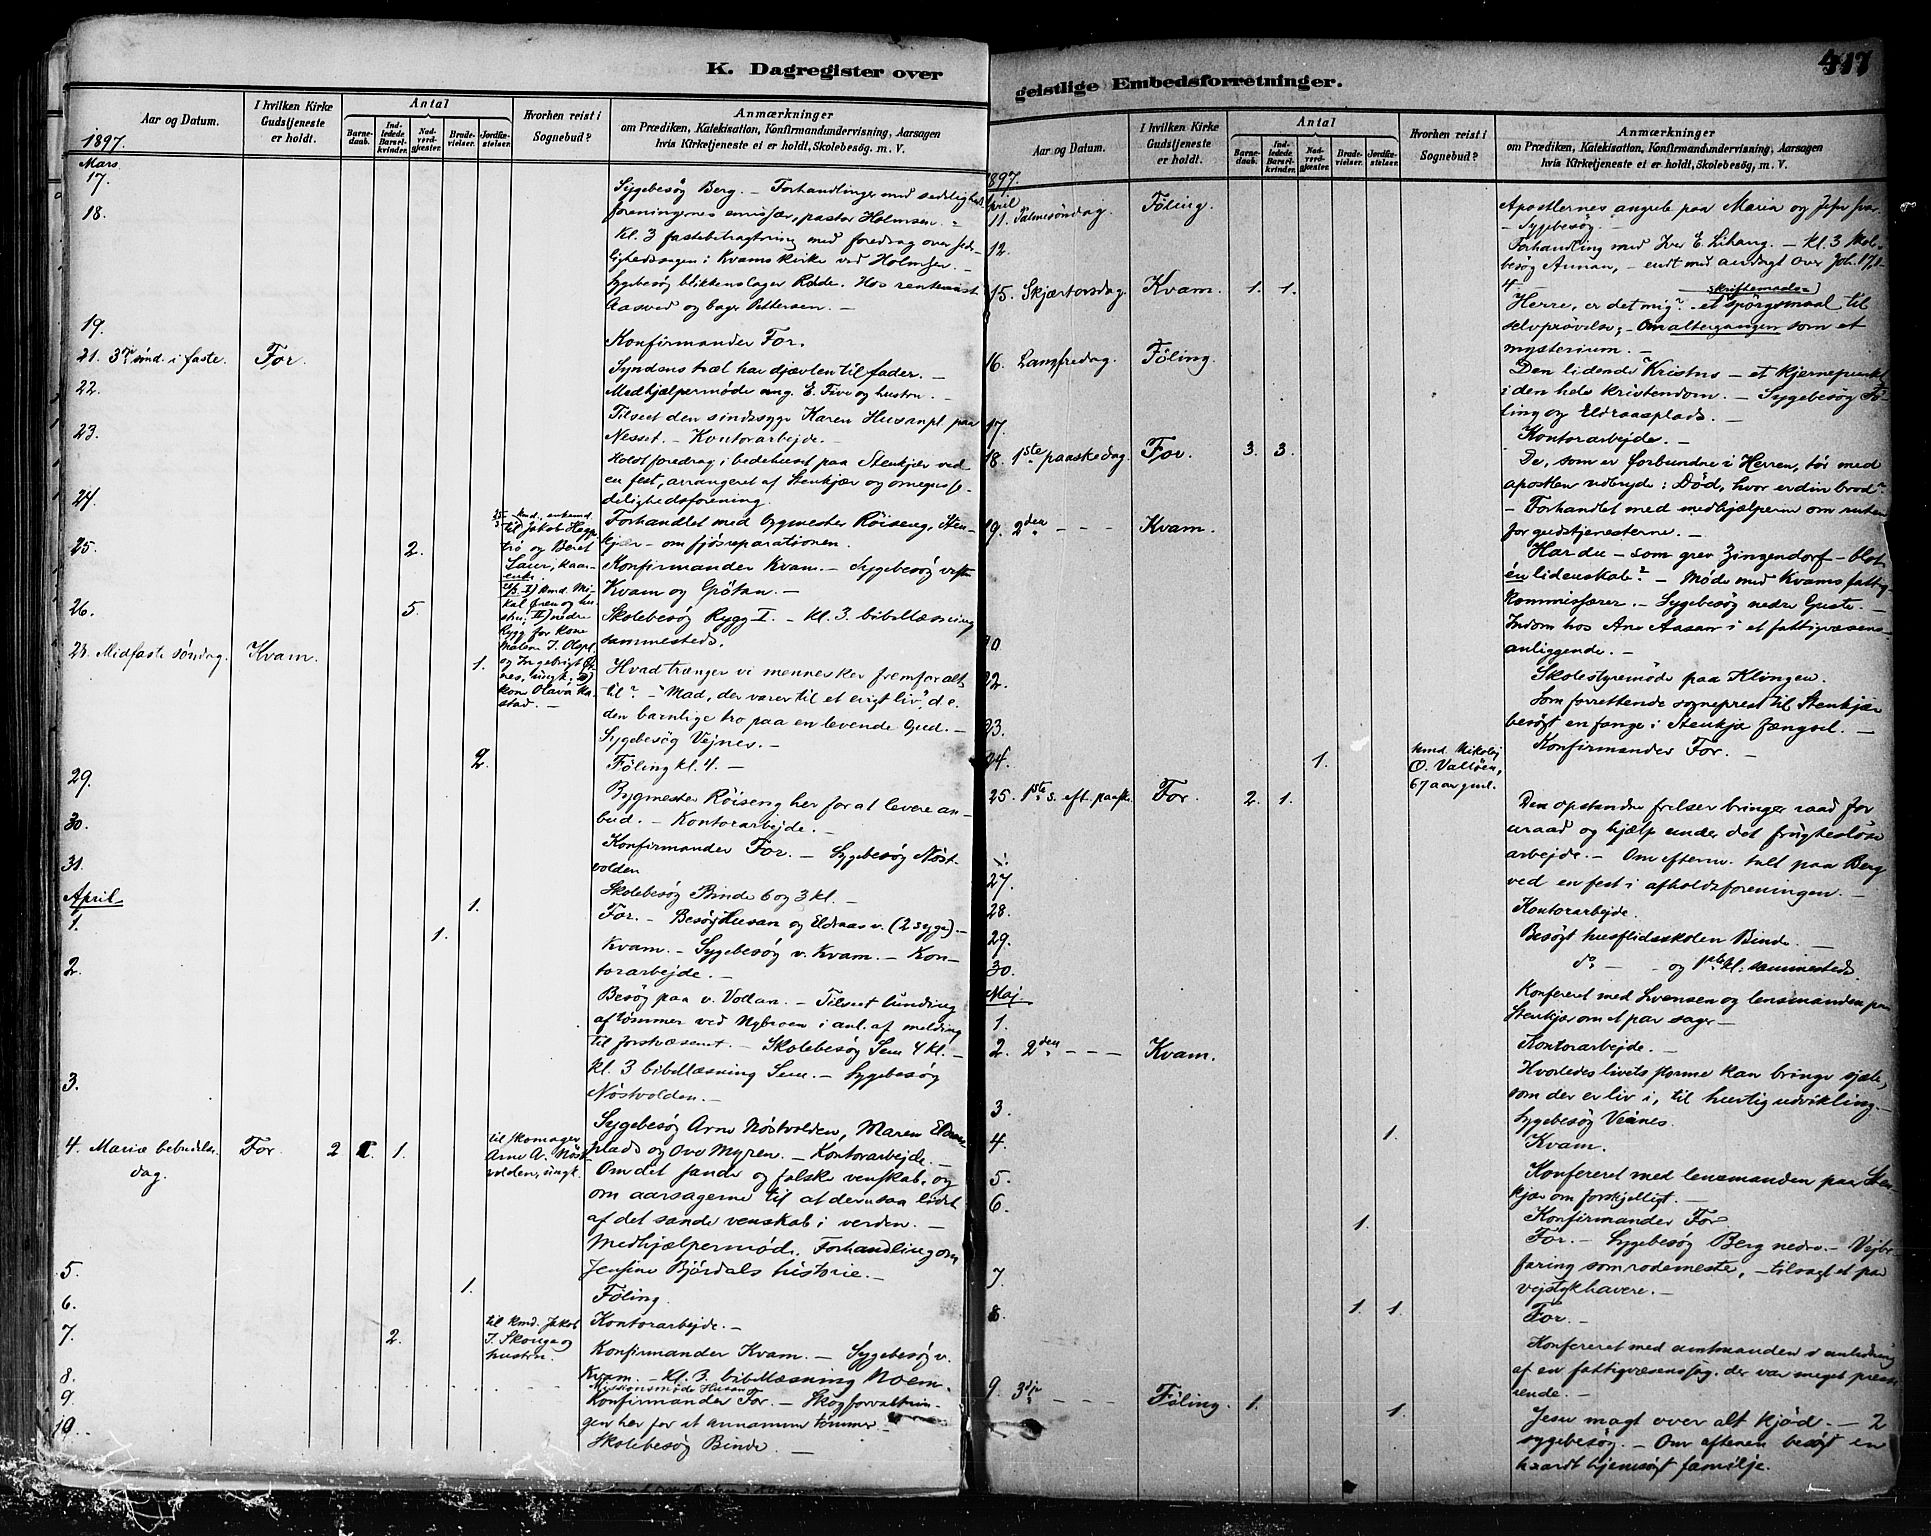 K. Dagregister over
Aar og Datum.
I hvilken Kirke
Gudstjeneste
er holdt.
Antal
Barne-
daab.
Ind-
ledede
Barsel-
kvinder.
Nad-
verd-
gjester.
Brude-
vielser.
Jordfæ-
stelser.
Hvorhen reist i
Sognebud?
Anmærkninger
om Prædiken, Katekisation, Konfirmandundervisning, Aarsagen
hvis Kirketjeneste ei er holdt, Skolebesøg, m. V.
1897.
Mars
17. Sygebesøg Berg. – Forhandlinger med sedeligheds
18. foreningernes emissær, pastor Holmsen. –
Kl. 3 fastebetragtning med foredrag over sede-
lighedssagen i Kvams kirke ved Holmsen. –
Sygebesøg blikkenslager Røde. Hos rentenist
Aasved og bager Pettersen. –
19. Konfirmander For.
21. 3die sønd. i faste. For.
Syndens træl har djævlen til fader. –
22. Medhjælpermøde ang. E. Five og hustru. –
Tilseet den sindssyge Karen Husanpl. paa
23. Nesset. – Kontorarbejde. –
Holdt foredrag i bedehuset paa Stenkjær ved
en fest, arrangeret af Stenkjær og omegns se-
24. delighedsforening.
Forhandlet med bygmester Røiseng, Sten-
25. 2. kjær – om fjøsreparationen.
til Jakob Hegge-
trø og Beret
Konfirmander Kvam. – Sygebesøg vestre
Kvam og Grøtan. –
26. 5. kmd. Mi-
kal Øren og hu-
stru, II) nedre
Rygg for kone
Malene J. Olspl.
og Ingebrigt
kone Olava
Skolebesøg Rygg I. – kl. 3. bibellæsning
sammesteds.
28. Midfaste søndag. Kvam. 1.
Hvad trænger vi mennesker fremfor alt
til? – "Mad, der varer til et evigt liv", d. e.
den barnlige tro paa en levende Gud. –
Sygebesøg Vejnes. –
2. Føling kl. 4. –
29. Bygmester Røiseng her for at levere an-
30. bud. – Kontorarbejde. –
Konfirmander For. – Sygebesøg Nøst-
31. volden
April Skolebesøg Binde 6 og 3 kl. –
1. 1. For. – Besøg Husan og Eldraas v. (2 syge). –
1. Kvam. – Sygebesøg v. Kvam. – Kon-
2. torarbejde. –
Besøg paa v. Vollan. – Tilseet lunding
af tømmer ved Nybroen i anl. af melding
til forstvæsenet. – Skolebesøg Sem 4 kl. –
kl. 3 bibellæsning Sem. – Sygebesøg
3. Nøstvolden. –
Sygebesøg Arne Nøstvolden, Maren Eldraas-
plads og Ove Myren. – Kontorarbejde. –
4. Mariæ bebudelses
dag. For. 2 1.
til skomager
Arne A. Nøst-
volden, ungk.
Om det sande og falske venskab, og
om aarsagerne til at der er saa lidet
af det sande venskab i verden. –
Medhjælpermøde. Forhandling om
5. Jensine Bjørdals historie. –
6. 1. Føling.
7. 2. til kmd. Jakob
J. Skauge og
hustru. Kontorarbejde. –
Konfirmander Kvam. – Sygebesøg v.
8. Kvam. – Kl. 3. bibellæsning Noem.
Missionsmøde Husan
9. Konfirmander For. – Skogforvaltnin-
gen her for at annamme tømmer. –
10. Skolebesøg Binde. –
geistlige Embedsforretninger.
417
Aar og Datum.
I hvilken Kirke
Gudstjeneste
er holdt.
Antal
Barne-
daab.
Ind-
ledede
Barsel-
kvinder.
Nad-
verd-
gjester.
Brude-
vielser.
Jordfæ-
stelser.
Hvorhen reist i
Sognebud?
Anmærkninger
om Prædiken, Katekisation, Konfirmandundervisning, Aarsagen
hvis Kirketjeneste ei er holdt, Skolebesøg, m. V.
1897.
April
11. Palmesøndag. Føling.
Apostlernes angreb paa Maria og Jesu svar.
– Sygebesøg. –
12. Forhandling med Iver E. Lihaug. – kl. 3 skol-
besøg Annan, – endt med andagt over Joh. 17,1-
4 –
15. Skjærtorsdag. Kvam. 1. 1.
(skriftemaals)
Herre, er det mig? et spørgsmaal til
selvprøvelse; – Om altergangen som et
mysterium. –
16. Langfredag. Føling.
Den lidende Kristus – et kjernepunkt
i den hele kristendom. – Sygebesøg Fø-
ling og Eldraasplads. –
17. Kontorarbejde. –
18. 1ste paaskedag. For. 3. 3.
De, som er forbundne i Herren, tør med
apostlen udbryde: Død, hvor er din brod?
– Forhandlet med medhjælperne om ruten
for gudstjenesterne. –
19. 2den – – – Kvam.
Har du – som grev Zinzendorf – blot
én lidenskab? – Møde med Kvams fattig-
kommissærer. – Sygebesøg nedre Guste. –
Indom hos Ane Aasan i et fattigvæsens-
20 anliggende. –
22. Skolestyremøde paa Klingen.
Som forrettende sogneprest til Stenkjær
23. besøgt en fange i Stenkjær fængsel. –
24. 1. kmd. Nikolaj
O. Valløen,
67 aar gml. Konfirmander For. –
25. 1ste s. eft. paaske For. 2. 1.
Den opstandne frelser bringer raad for
uraad og hjælp under det frugtesløse
arbejde. – Om efterm. talt paa Berg
27. ved en fest i afholdsforeningen. –
28. Kontorarbejde.
29. Besøgt husflidsskolen Binde. –
30. do – og 1ste kl. sammesteds
Maj Konfereret med Svensen og lensmanden paa
1. Stenkjær om et par sager –
Kontorarbejde. –
2. 2den – – – Kvam.
Hvorledes livets former kan bringe sjæle,
som der er liv i, til hurtig udvikling. –
3. Sygebesøg Veines. –
4. 1. Kvam.
5. Konfereret med lensmanden paa Sten-
kjær om forskjelligt. –
6. Konfirmander For
1. For. – Sygebesøg Berg nedre. – Vejbe-
faring som rodemester, – tilsagt et par
7. vejstykhavere. –
8. 1. 1. For. –
Konfereret med amtmanden i anledning
af en fattigvæsenssag, der var meget presse-
rende. –
9. 3die – – – Føling. 1. 1.
Jesu magt over alt kjød. – 2
sygebesøg. – Om aftenen besøgt en
haardt hjemsøgt familje.